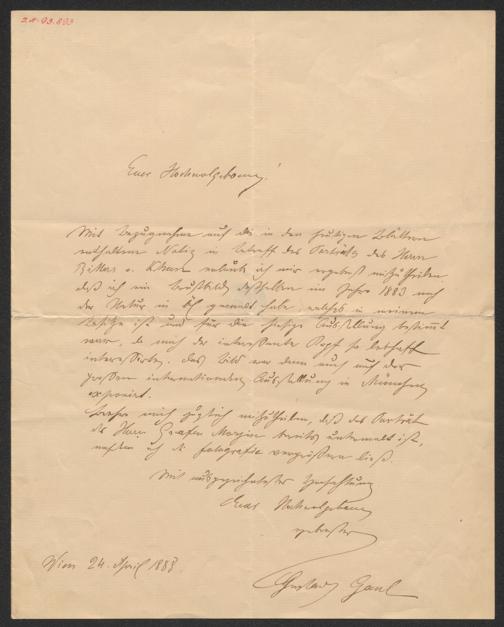 Euer Hochwolgeboren!
Mit Bezugnahme auf die in den heutigen Blättern
enthaltene Notiz in betreff des Porträts des Herrn
Ritter v. erlaube ich mir ergebenst mitzutheilen
daß ich ein Brustbild desselben im Jahre 1883 nach
der Natur in Öl gemalt habe, welches in meinem
Besitze ist und für die hiesige Ausstellung bestimmt
war, da mich der interessante Kopf so lebhaft
interessirte, das Bild war dann auch auf der
großen internationalen Ausstellung in München
exponirt.
mich zugleich mitzutheilen, daß das Porträt
des Herrn Grafen bereits untermalt ist,
nachdem ich die Fotografie vergrößern ließ.
Mit ausgezeichneter Hochachtung
Euer Hochwolgeboren
ergebenster
Wien 24. April 1888
Gustav Gaul